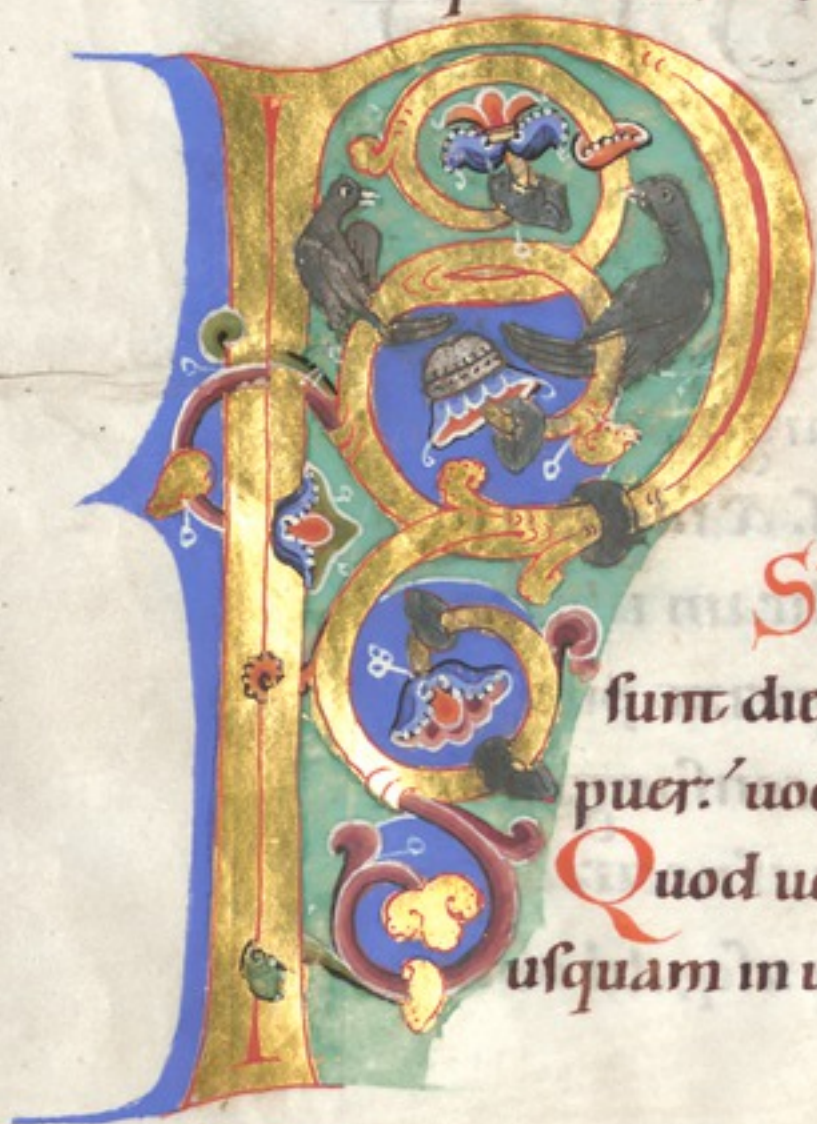 P
S
sunt die
puer:ʹ uoc
Quod ua
usquam in u